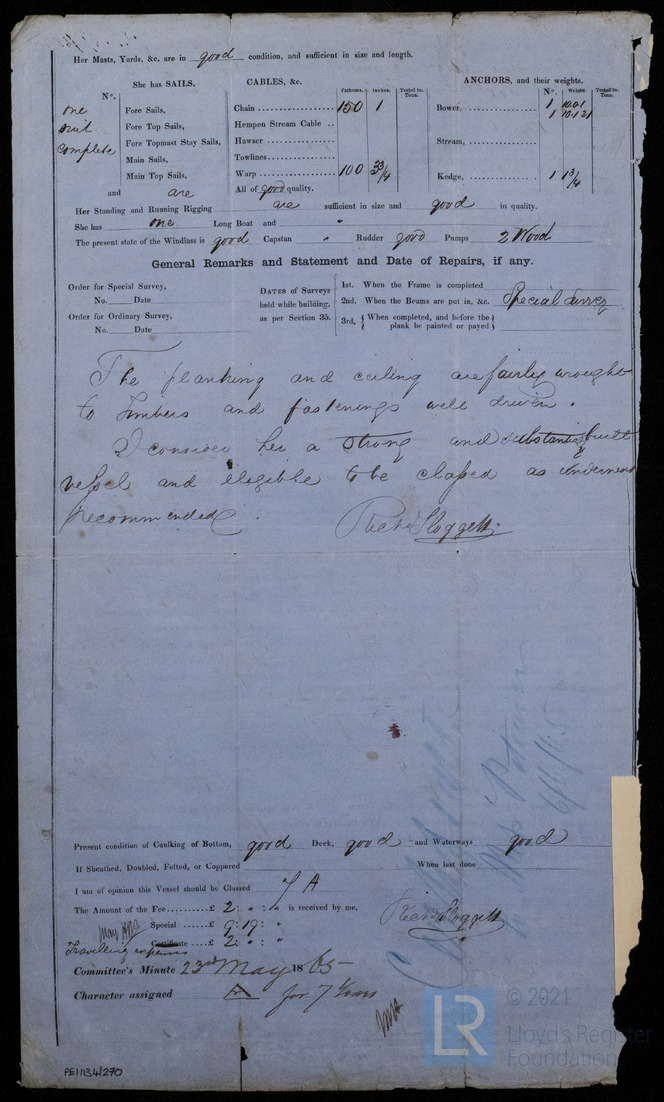 Her Masts, Yards, &c. are in good condition, and sufficient in size and length.
She has SAILS. CABLES, &c. ANCHORS, and their weights.
N°. Fathoms. Inches. Tested to Tons. N°. Weight. Tested to Tons.
one Fore Sails, Chain 150 1 Bower, 1 10.0.1
suit Fore Top Sails, Hempen Stream Cable 1 10.1.21
complete Fore Topmast Stay Sails, Hawser Stream,
Main Sails, Towlines
Main Top Sails, Warp 100 3 3/4 Kedge, 1 1 3/4
and are All of good quality.
Her Standing and Running Rigging are sufficient in size and good in quality.
She has one Long Boat and "
The present state of the Windlass is good Capstan " Rudder good Pumps 2 Wood
General Remarks and Statement and Date of Repairs, if any.
Order for Special Survey, No. Date
Order for Ordinary Survey, No. Date
DATES of Surveys held while building, as per Section 35.
1st. When the Frame is completed
2nd. When the Beams are put in, &c. Special Survey
3rd, { When completed, and before the plank be painted or payed }
The planking and ceiling are fairly wrought
to timbers and fastenings well driven.
I consider her a strong and substantialy built
vessel and eligible to be classed as underneath
recommended. Richd Sloggett.
Present condition of Caulking of Bottom, good Deck, good and Waterways good
If Sheathed, Doubled, Felted, or Coppered When last done
I am of opinion this Vessel should be Classed 7 A
The Amount of the Fee £ 2: " : " is received by me,
Richd Sloggett
May Special £ 9: 19: "
Certificate £ 2: " : "
Travelling expenses
Committee's Minute 23rd May 1865
Character assigned A for 7 Years
PE1/134/270
LR
© 2021
Lloyd's Register
Foundation